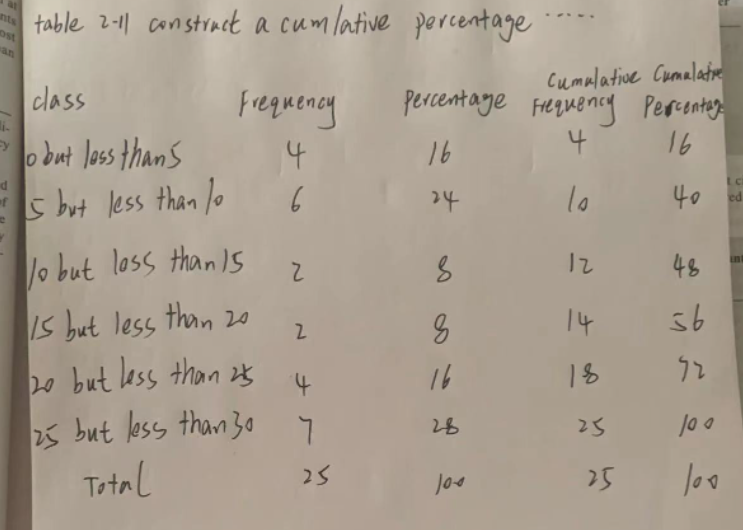 table 2-11 construct a cumlative percentage .....
class Frequency Percentage Cumulative Frequency Cumulative Percentage
0 but less than 5 4 16 4 16
5 but less than 10 6 24 10 40
10 but loss than 15 2 8 12 48
15 but less than 20 2 8 14 56
20 but less than 25 4 16 18 72
25 but less than 30 7 28 25 100
Total 25 100 25 100